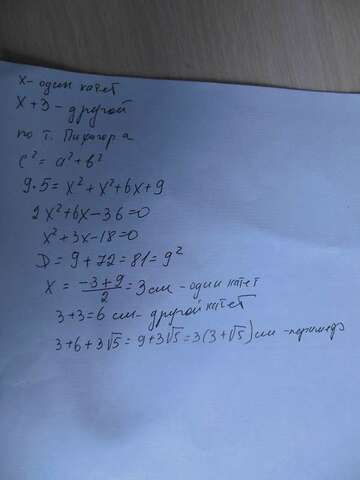 x - один катет
x + 3 - другой
по т. Пифагора
c² = a² + b²
9·5 = x² + x² + 6x + 9
2x² + 6x - 36 = 0
x² + 3x - 18 = 0
D = 9 + 72 = 81 = 9²
x = (-3 + 9)/2 = 3 см - один катет
3 + 3 = 6 см - другой катет
3 + 6 + 3√5 = 9 + 3√5 = 3(3 + √5) см - периметр